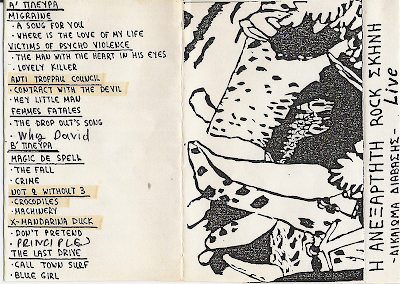 Α' ΠΛΕΥΡΑ
MIGRAINE
· A SONG FOR YOU
· WHERE IS THE LOVE OF MY LIFE
VICTIMS OF PSYCHO VIOLENCE
· THE MAN WITH THE HEART IN HIS EYES
· LOVELY KILLER
ANTI TROPPAU COUNCIL
· CONTRACT WITH THE DEVIL
· HEY LITTLE MAN
FEMMES FATALES
· THE DROP OUT'S SONG
Why David
Β' ΠΛΕΥΡΑ
MAGIC DE SPELL
· THE FALL
· CRIME
NOT 2 WITHOUT 3
· CROCODILES
· MACHINERY
X-MANDARINA DUCK
· DON'T PRETEND
· PRINCIPLE
THE LAST DRIVE
· CALL TOWN SURF
· BLUE GIRL
Η ΑΝΕΞΑΡΤΗΤΗ ROCK ΣΚΗΝΗ
-ΔΙΚΑΙΩΜΑ ΔΙΑΒΑΣΗΣ- Live